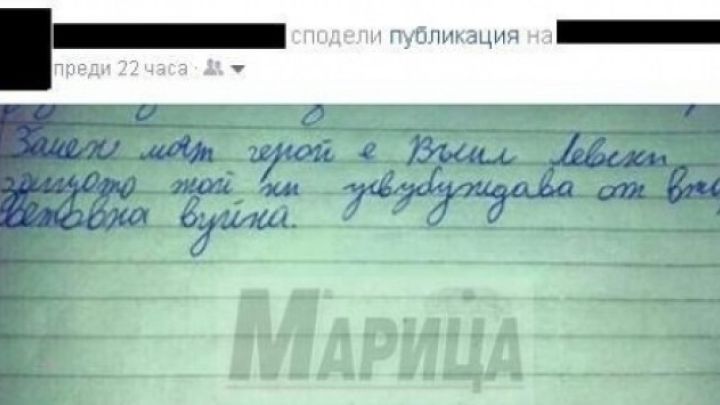 сподели публикация на
преди 22 часа
мот герой е Въсил Левски
защуото той ни усвубуждава от
световна вуйна.
МАРИЦА